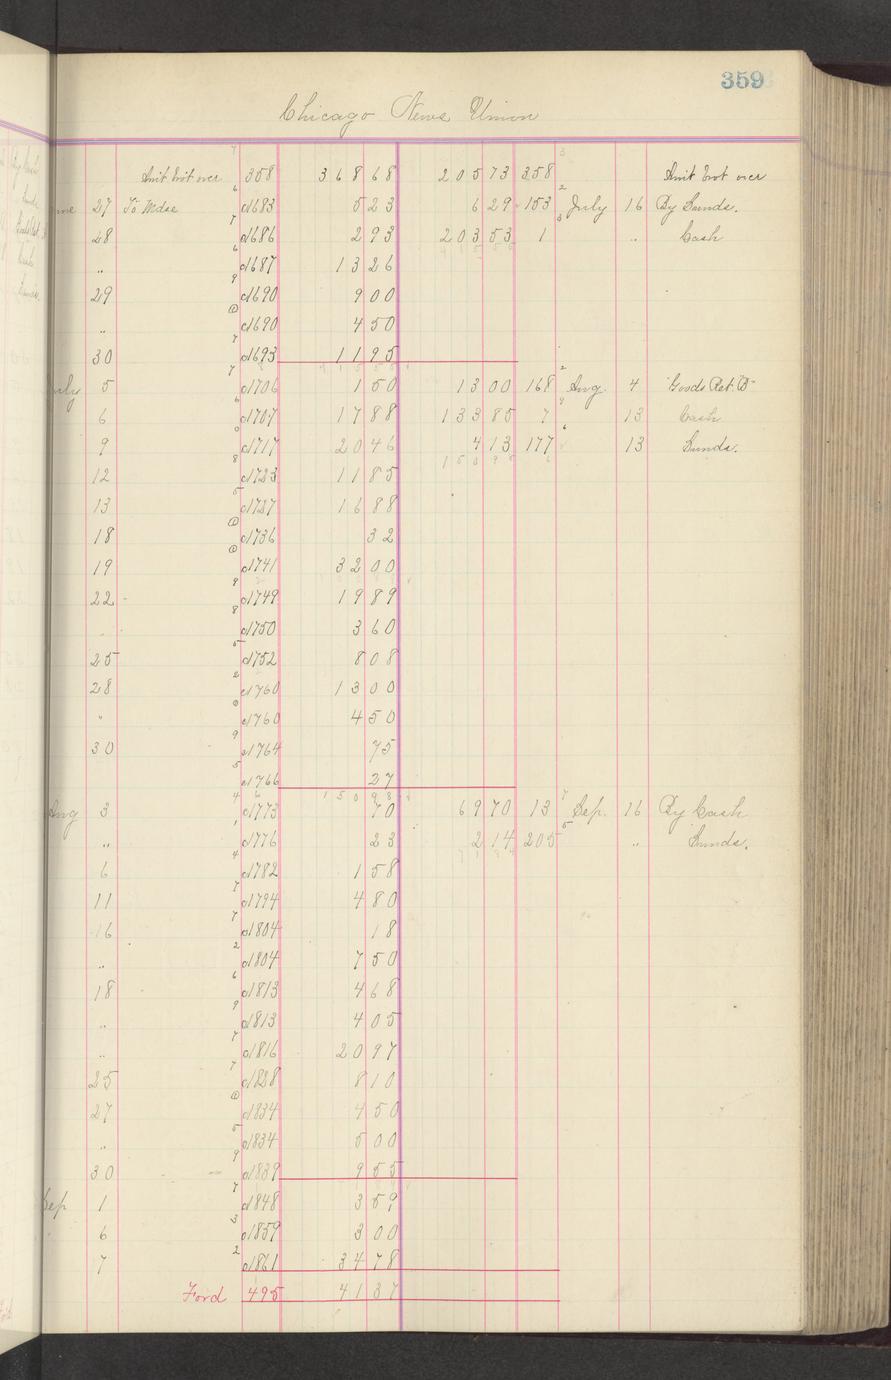 359
Chicago News Union
Amt brot over 358 368 68 205 73 358 Amt brot over
27 To Mdse 1683 5 23 6 29 153 July 16 By Sunds.
28 1686 2 93 203 53 1 " Cash
" 1687 13 26
29 1690 9 00
" 1690 4 50
30 1693 11 95
July 5 1706 1 50 13 00 168 Aug. 4 Goods Ret. B
6 1707 17 88 133 85 7 13 Cash
9 1717 20 46 4 13 177 13 Sunds.
12 1723 11 85
13 1727 16 88
18 1736 32
19 1741 32 00
22 1749 19 89
1750 3 60
25 1752 8 08
28 1760 13 00
" 1760 4 50
30 1764 75
1766 27
Aug 3 1773 70 69 70 13 Sep. 16 By Cash
" 1776 23 2 14 205 " Sunds.
6 1782 1 58
11 1794 4 80
16 1804 18
" 1804 7 50
18 1813 4 68
" 1813 4 05
" 1816 20 97
25 1828 8 10
27 1834 4 50
" 1834 5 00
30 1839 9 55
Sep 1 1848 3 59
6 1859 3 00
7 1861 34 78
Ford 495 41 37